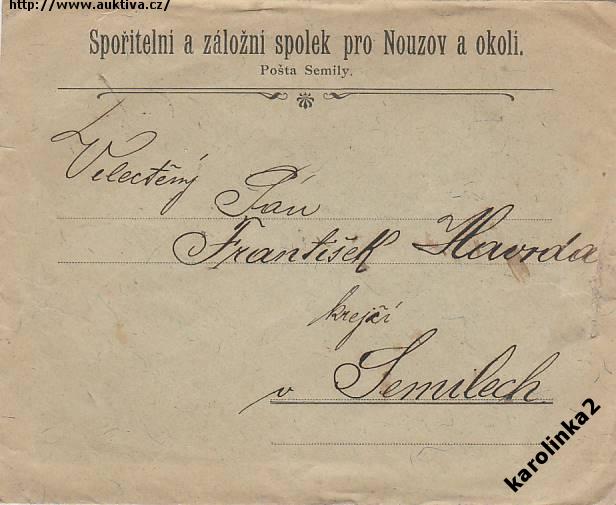 http://www.auktiva.cz/
Spořitelní a záložní spolek pro Nouzov a okolí.
Pošta Semily.
Velectěný
Pán
František Havrda
krejčí
v Semilech
karolinka2